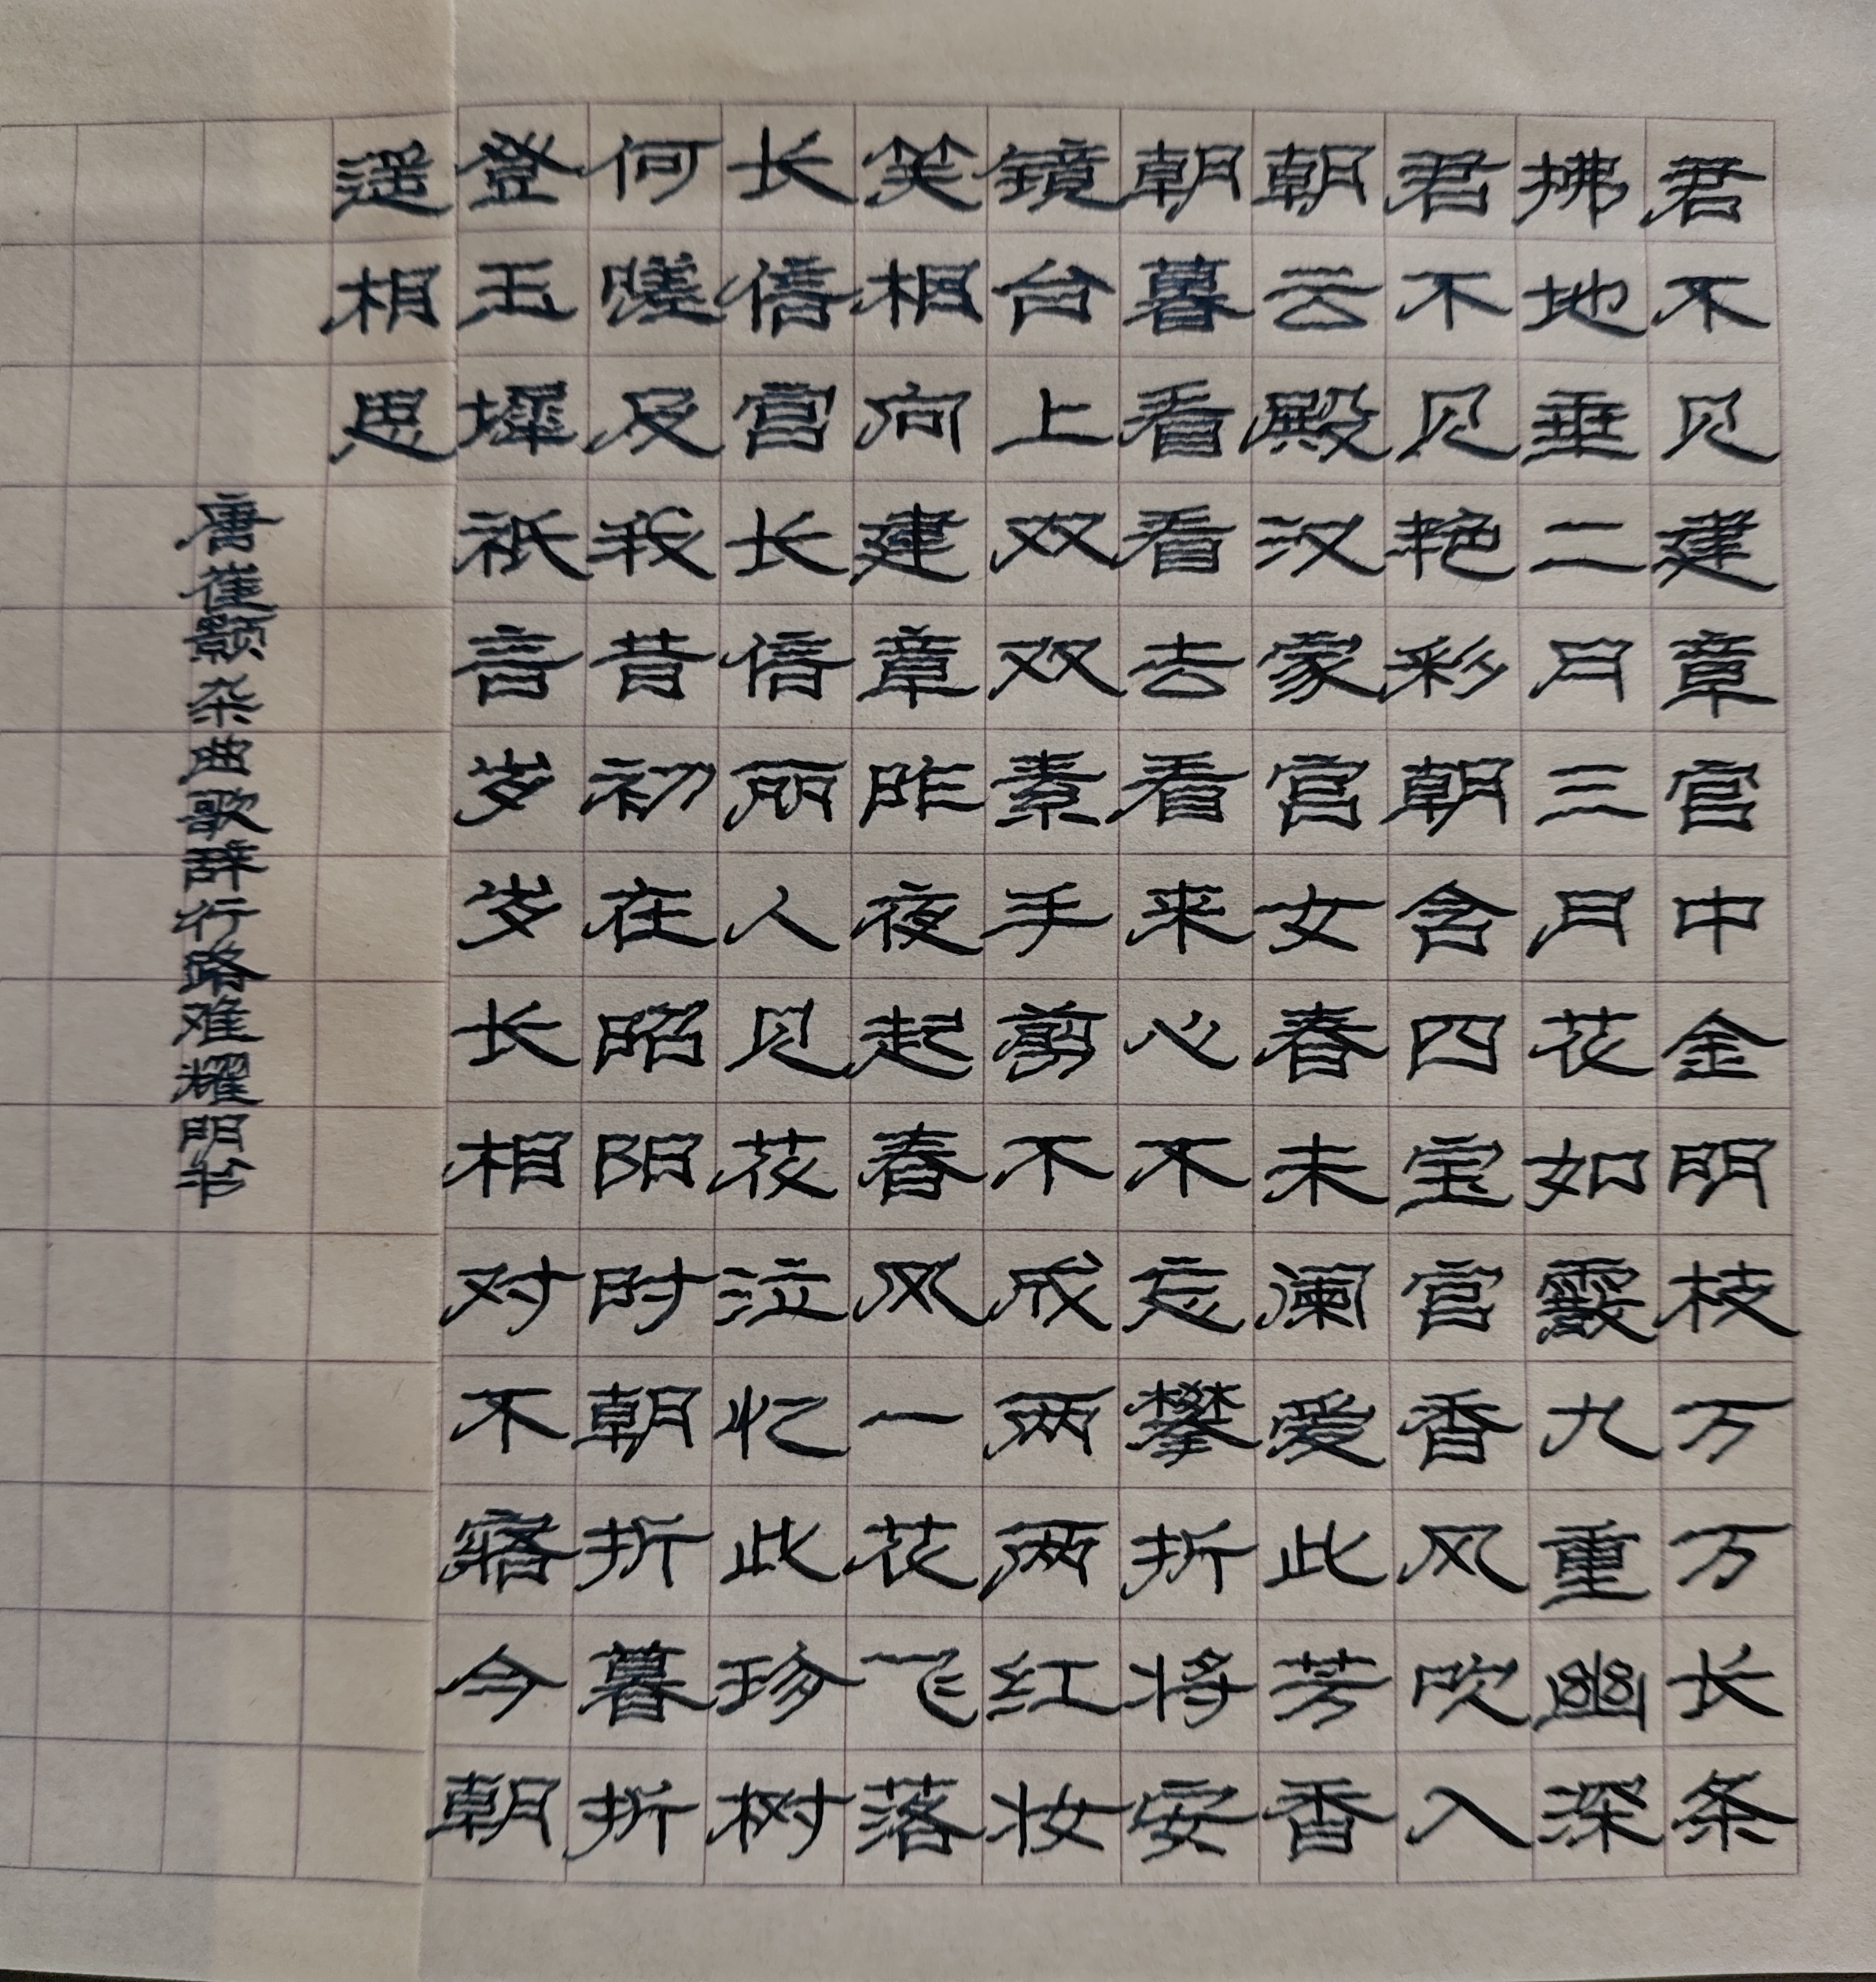 君不见建章宫中金明枝万万长条
拂地垂二月三月花如霰九重幽深
君不见艳彩朝含四宝宫香风吹入
朝云殿汉家宫女春未阑爱此芳香
朝暮看看去看来心不忘攀折将安
镜台上双双素手剪不成两两红妆
笑相向建章昨夜起春风一花飞落
长信宫长信丽人见花泣忆此珍树
何嗟及我昔初在昭阳时朝折暮折
登玉墀祇言岁岁长相对不寤今朝
遥相思
唐崔颢杂曲歌辞行路难耀明书